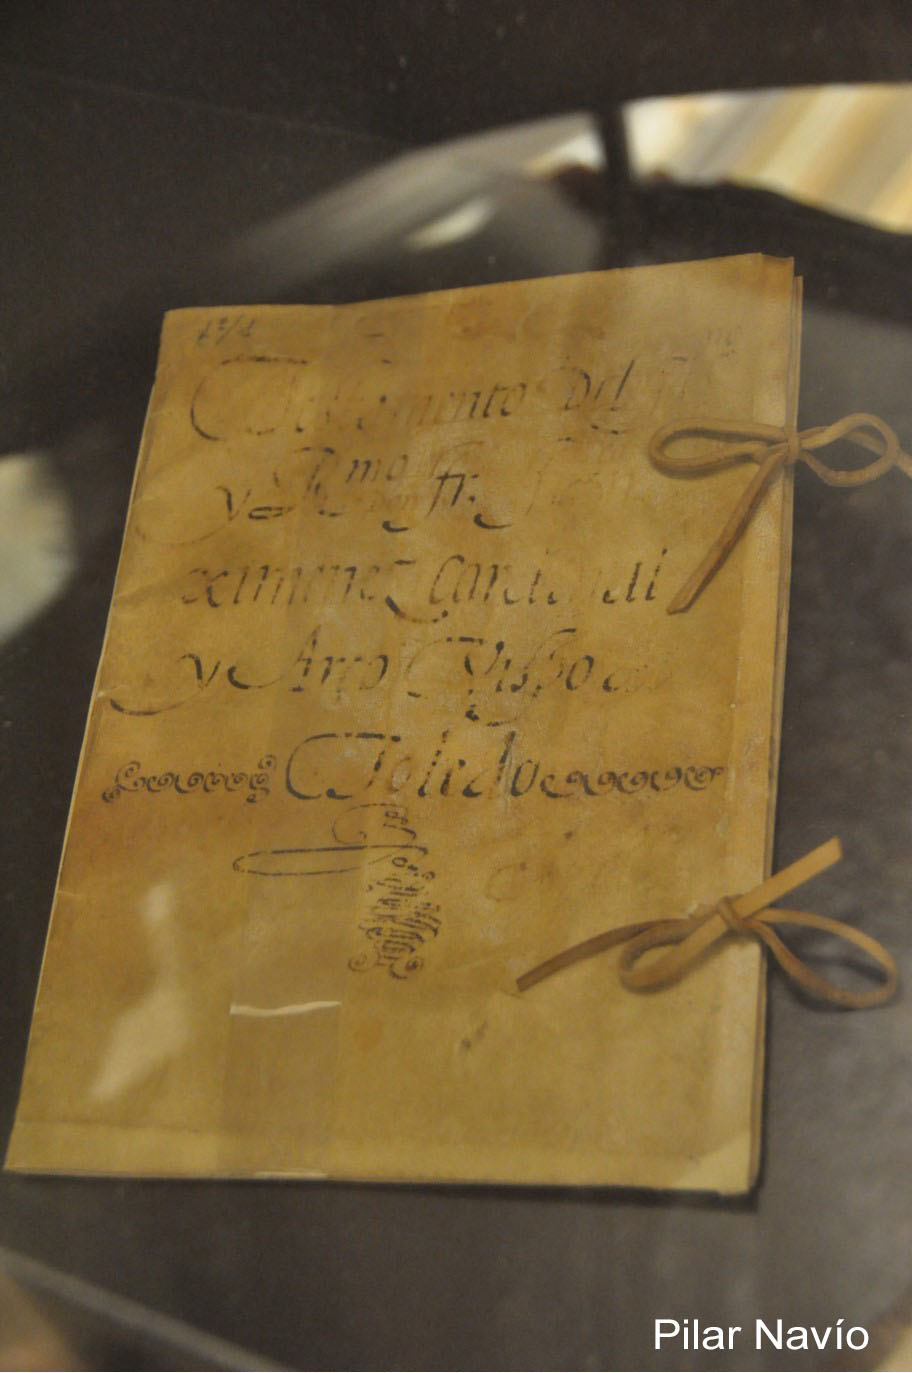 Testamento del Il
y R mo fr.
ximenez Cardenal
y Arço Vispo de
Toledo
Pilar Navío